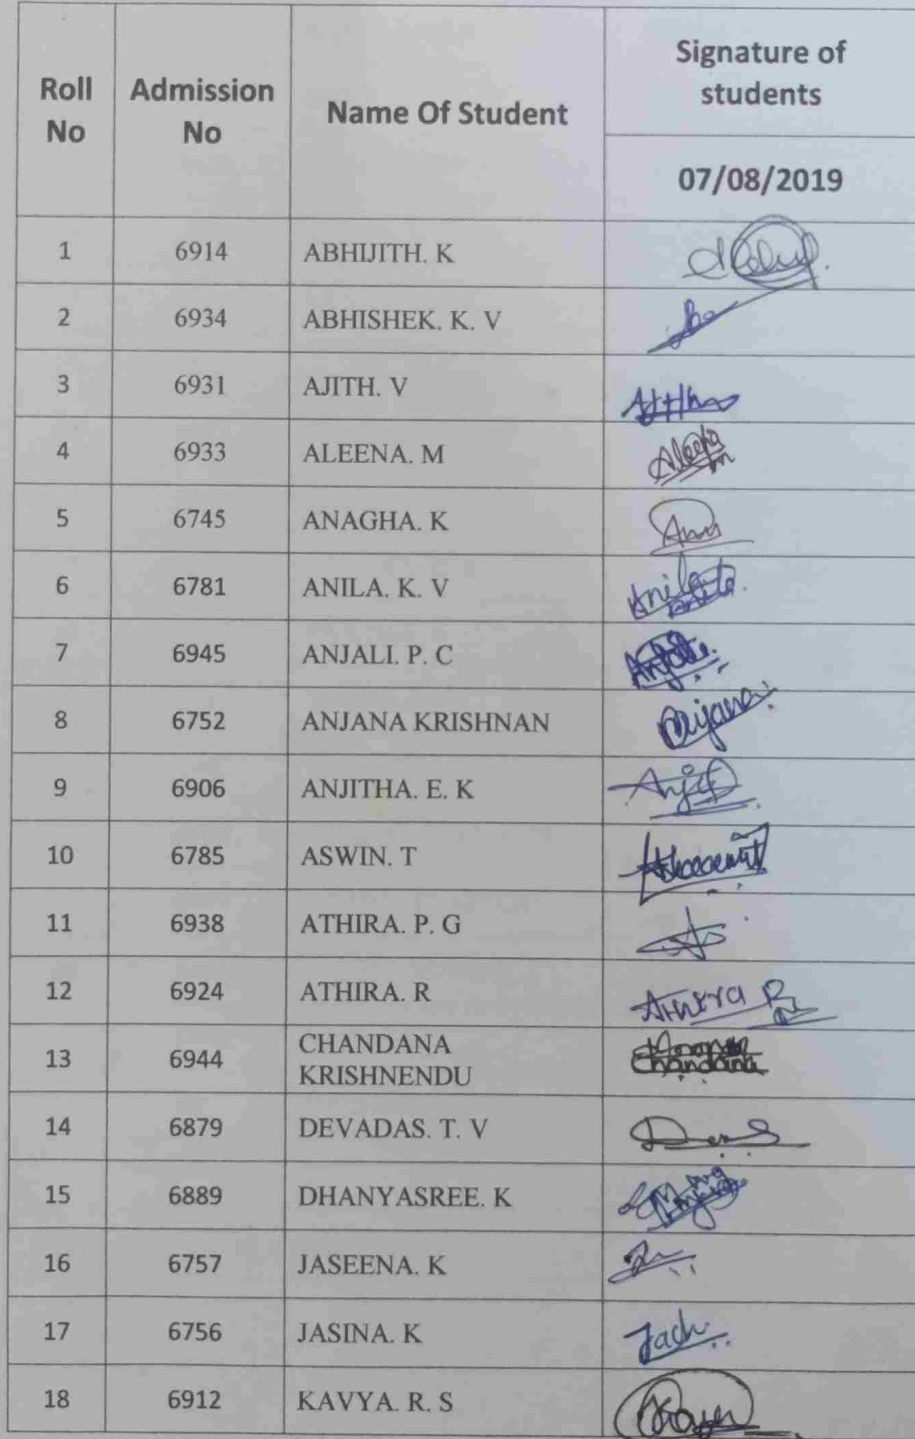 Roll No Admission No Name Of Student Signature of students
07/08/2019
1 6914 ABHIJITH. K
2 6934 ABHISHEK. K. V
3 6931 AJITH. V
4 6933 ALEENA. M Aleena M
5 6745 ANAGHA. K
6 6781 ANILA. K. V Anila
7 6945 ANJALI. P. C
8 6752 ANJANA KRISHNAN
9 6906 ANJITHA. E. K
10 6785 ASWIN. T
11 6938 ATHIRA. P. G
12 6924 ATHIRA. R Athira R
13 6944 CHANDANA KRISHNENDU Chandana
14 6879 DEVADAS. T. V
15 6889 DHANYASREE. K
16 6757 JASEENA. K
17 6756 JASINA. K
18 6912 KAVYA. R. S